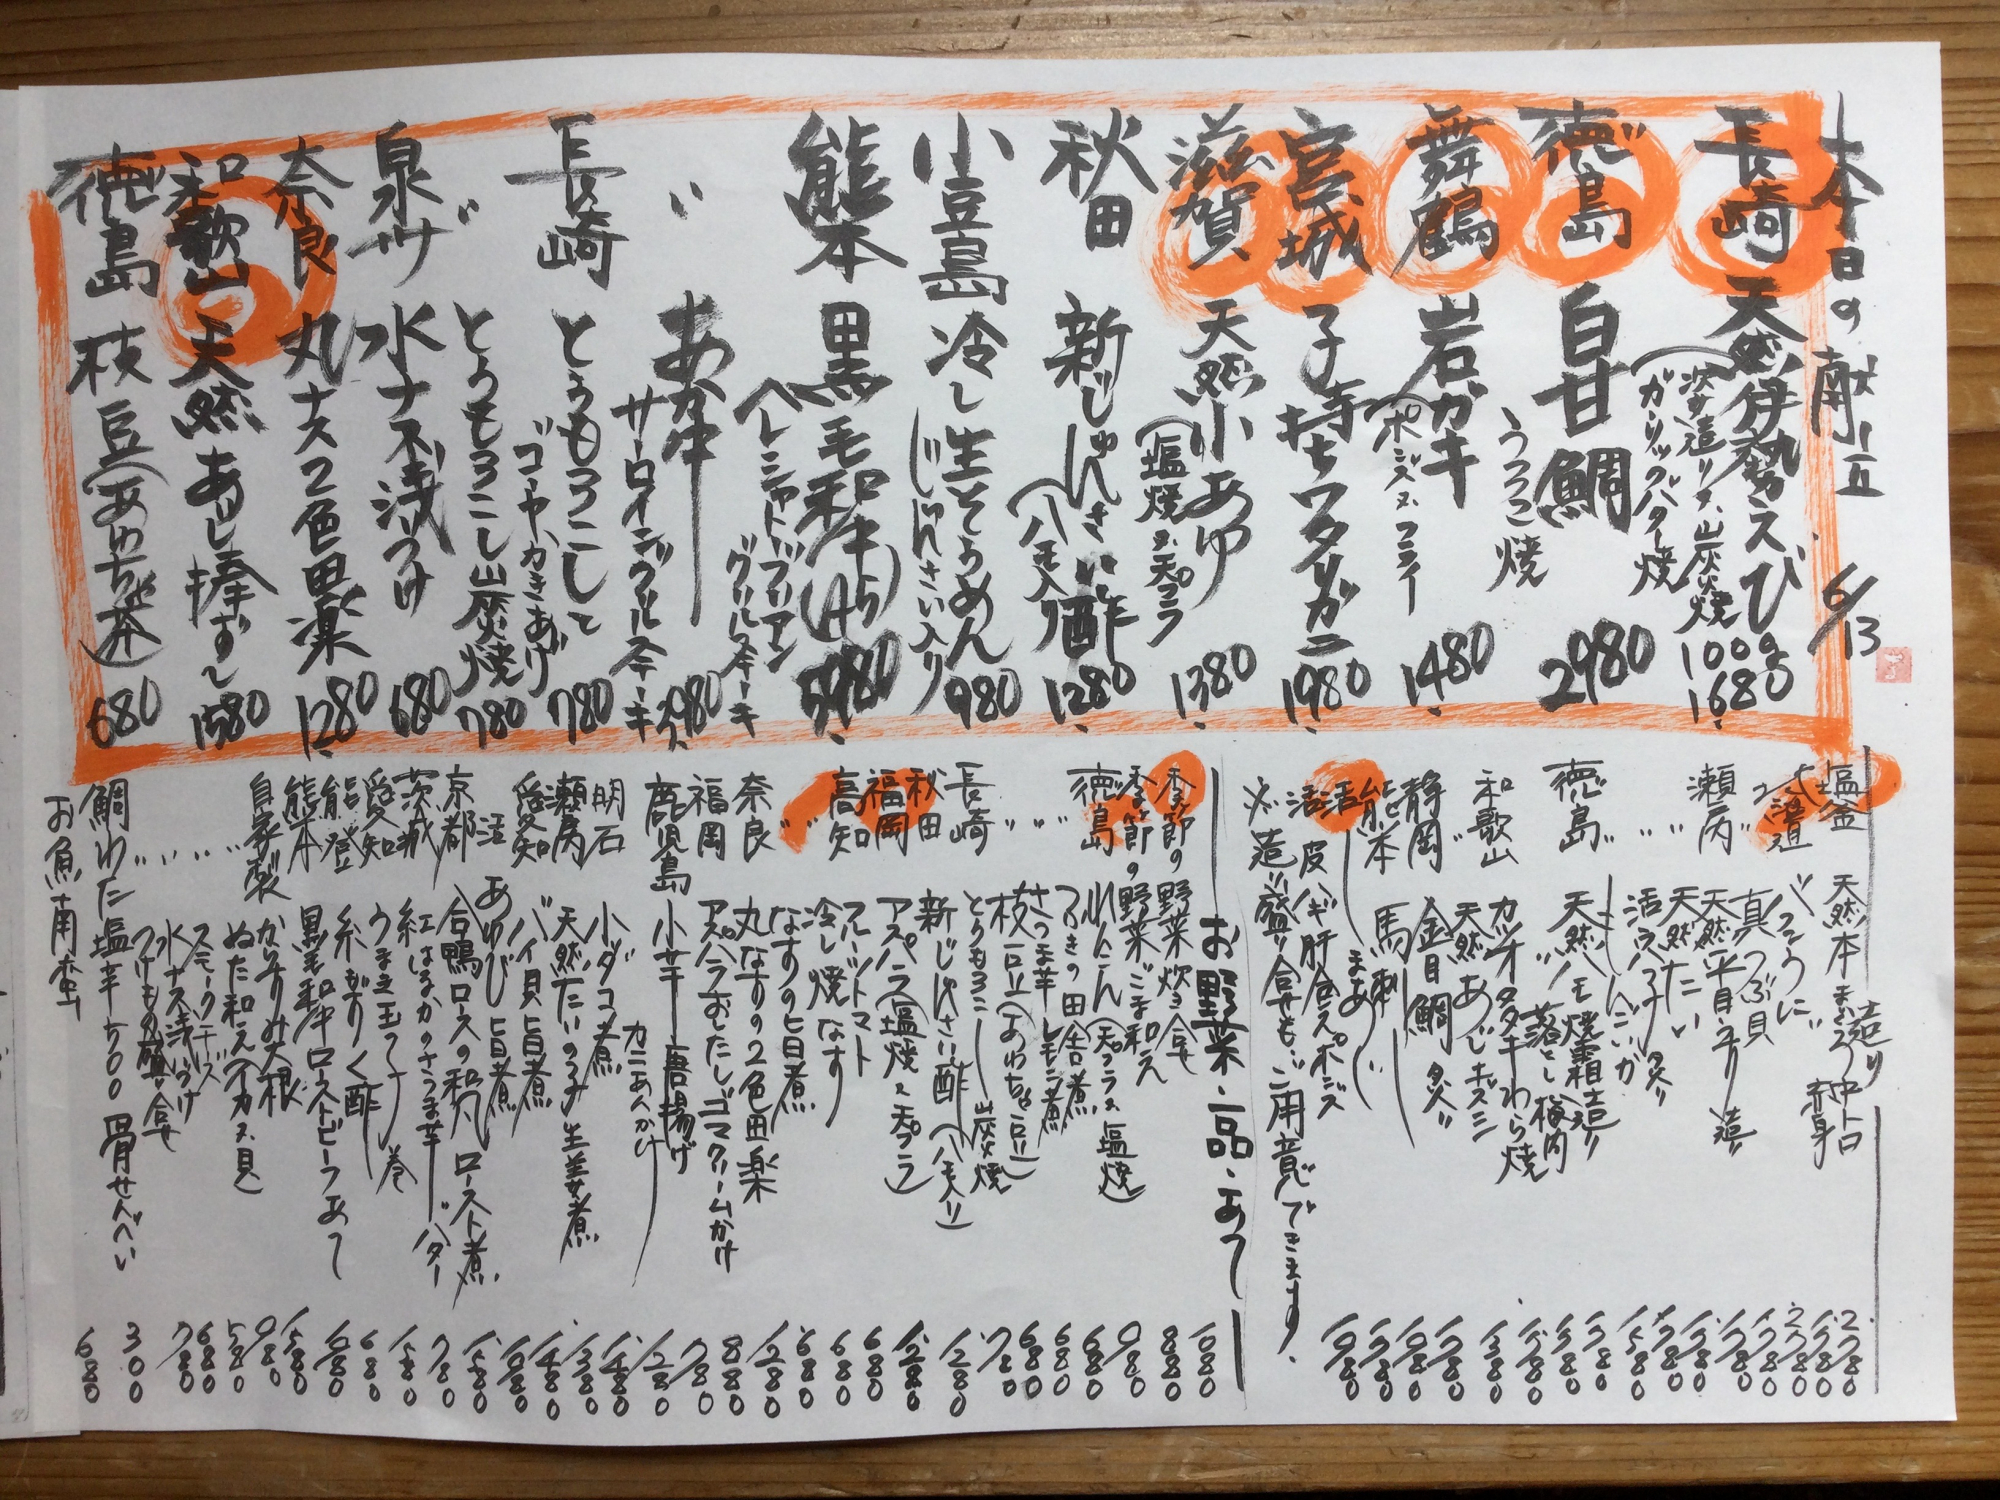 本日の献立 6/13
長崎 天然伊勢えび 100g 1680
(次ギ造り又、炭火焼
ガーリックバター焼
徳島 白甘鯛 2980
うろこ焼
舞鶴 岩ガキ 1480
(ポンズ又、フライ
宮城 子持ちワタリガニ 1980
滋賀 天然小あゆ 1380
(塩焼又、天プラ
秋田 新じゅんさい酢 1280
(ハモ入り
小豆島 冷し生そうめん 980
じゅんさい入り
熊本 黒毛和牛(A5) 5980
ヘレシャトーブリアン
グリルステーキ
〃 あか牛 3980
サーロイングリルステーキ
長崎 とうもろこしと 780
ゴーヤかきあげ
とうもろこし炭焼 780
泉サ 水ナス浅づけ 680
奈良 丸ナス2色田楽 1280
和歌山 天然あじ棒ずし 1580
徳島 枝豆(あわぢ茶) 680
造り
塩釜 天然本まぐろ 中トロ 2780
赤身
北海道 ばふんうに
〃 真つぶ貝
瀬戸内 天然平目うすり造り
〃 天然たい
〃 活穴子タタリ
〃 しんこいか
徳島 天然ハモ焼霜造り
〃 落とし梅肉
和歌山 カツオタタキわら焼
天然あじキズシ
静岡 金目鯛タタリ
熊本 馬刺し
活 まあじ
活 皮ハギ肝合ポンズ
※造り盛り合せも、ご用意できます。
お野菜・一品・あて
季節の野菜炊き合せ 1080
季節の野菜ごま和え 880
徳島 れんこん(天プラ又、塩焼) 980
〃 ふきの田舎煮 680
〃 さつま芋レモン煮 680
〃 枝豆(あわぢ豆) 680
長崎 とうもろこし炭火焼 780
秋田 新じゅんさい酢(ハモ入り) 1280
福岡 アスパラ(塩焼又、天プラ) 1280
高知 フルーツトマト 680
〃 冷し焼なす 680
〃 なすの旨煮 680
奈良 丸なすの2色田楽 1280
福岡 アスパラおしたしゴマクリームかけ 880
鹿児島 小芋唐揚げ 780
カニあんかけ 1280
明石 小ダコ煮 1480
瀬戸内 天然たいの子生姜煮 1380
愛知 バイ貝旨煮 1480
活 あわび旨煮
京都 合鴨ロースの和風ロースト煮 1580
茨城 紅はるかのさつま芋バター 780
愛知 うまき玉子巻
能登 糸もずく酢 680
熊本 黒毛和牛ローストビーフあて
自家製 からすみ大根
〃 ぬた和え(イカ又、貝) 980
〃 スモークチーズ 580
〃 水ナス浅づけ 680
〃 つけもの盛り合せ 780
鯛わた塩辛500 骨せんべい 300
お魚南蛮 680